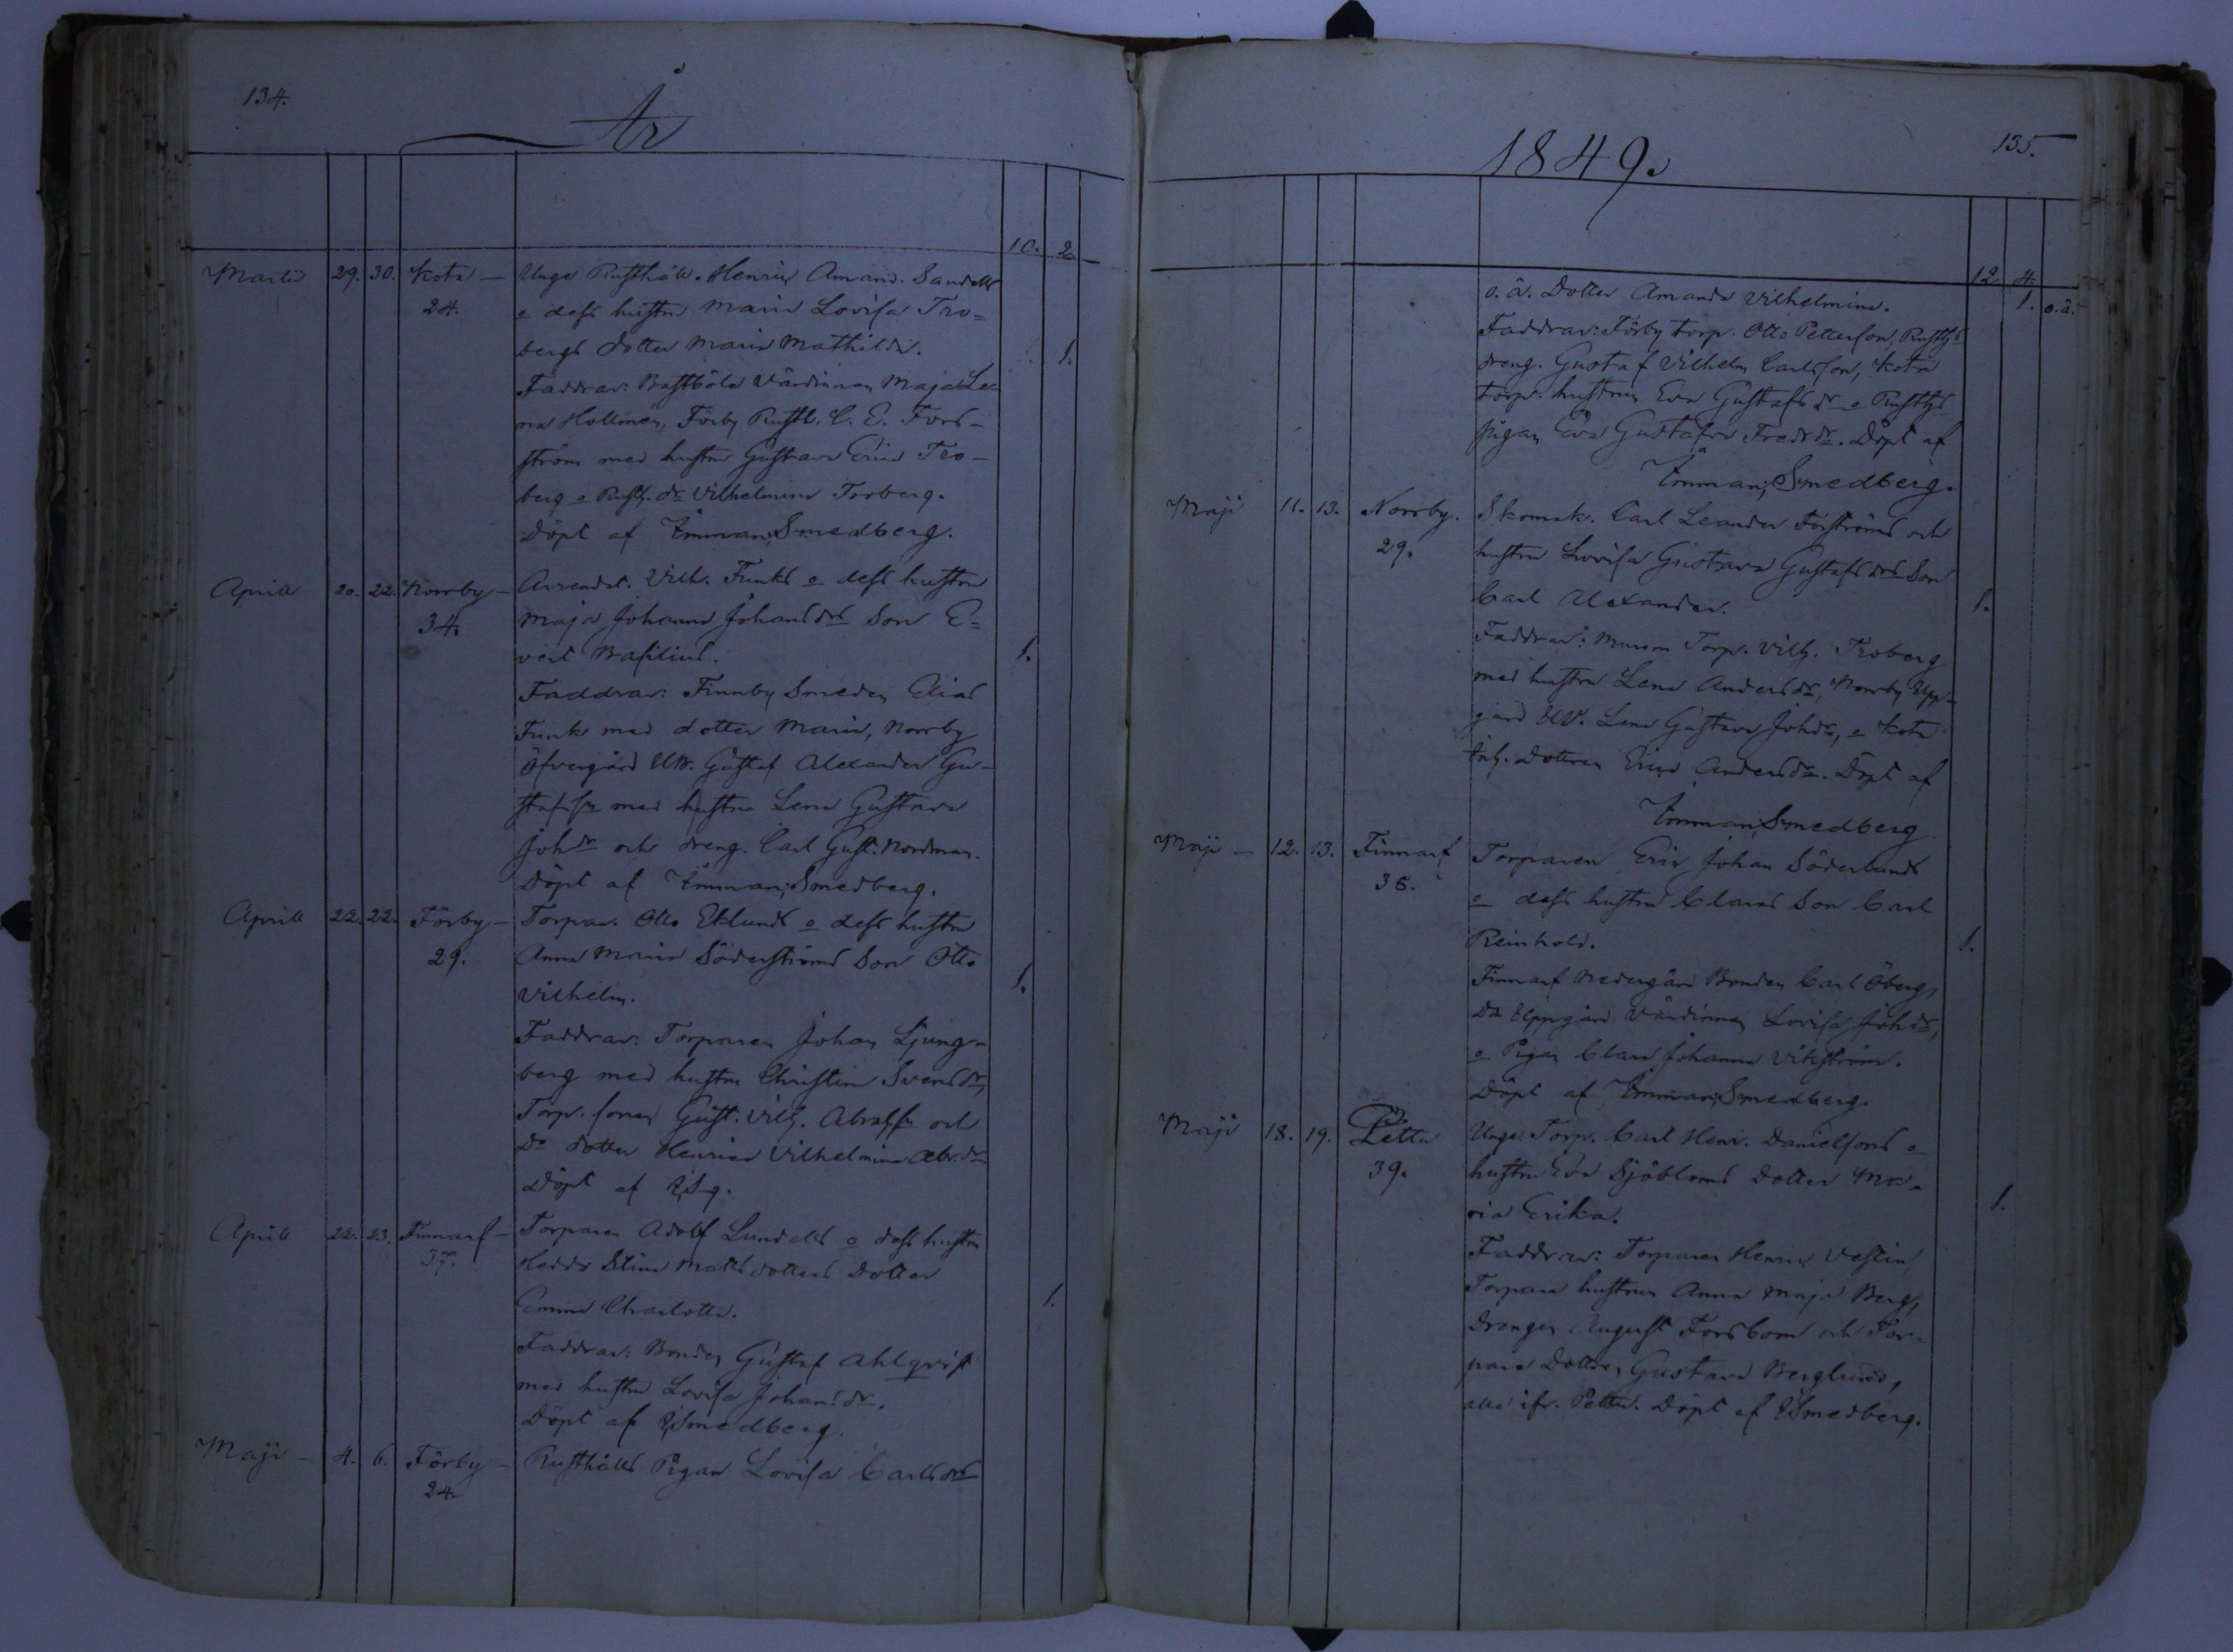 134.
År
10. 2
Martii 29. 30. Kota — Unge Rusthåll. Henric Amand. Sandells
24. o dess hustru Maria Lovisa Tro=
bergs dotter Maria Mathilda. 1.
Faddrar: Bastböle Värdinnan Maja Le-
na Hollmén, Förby Rusth. C. E. Fors-
ström med hustru Gustava Erica Tro-
berg o Rusth. dr Vilhelmina Troberg.
Döpt af Emman. Smedberg.
Aprill 20. 22. Norrby — Arrendat. Vilh. Funks o dess hustru
34. Maja Johanna Johansdrs Son E=
vert Basilius. 1.
Faddrar: Finnby Smeden Elias
Funk med dotter Maria, Norrby
Öfvergård Utb. Gustaf Alexander Gu-
stafsson med hustru Lena Gustava
Johdr och dreng. Carl Gust. Nordman.
Döpt af Emman. Smedberg.
Aprill 22. 22. Förby — Torpar. Otto Eklunds o dess hustru
29. Anna Maria Söderströms Son Otto
Vilhelm. 1.
Faddrar: Torparen Johan Ljung-
berg med hustru Christina Svensdr,
Torp. sonen Gust. Vilh. Abrahss och
Do dotter Henrica Vilhelmina Abr.dr
Döpt af E. S-g.
Aprill 22. 23. Finnarf — Torparen Adolf Lundells o dess hustru
37. Hedda Stina Mattsdotters Dotter
Emma Charlotta. 1.
Faddrar: Bonden Gustaf Ahlqvist
med hustru Lovisa Johansdr.
Döpt af E. Smedberg.
Maji — 4. 6. Förby — Rusthålls Pigan Lovisa Carlsdrs
24.
1849.
135.
12. 4.
o. ä. Dotter Amanda Vilhelmina. 1. o.ä.
Faddrar: Förby torp. Otto Petterson, Rusths
dreng. Gustaf Vilhelm Carlsson, Kota
torp. hustrun Eva Gustafsdr o Rusths
pigan Eva Gustafva Fredrdr. Döpt af
Emman. Smedberg.
Maji 11. 13. Norrby. Skomak. Carl Leander Forströms och
29. hustru Lovisa Gustava Gustafsdrs Son
Carl Alexander. 1.
Faddrar: Torp. Vilh. Troberg
med hustru Lena Andersdr, Norrby Upp-
gård Lena Gustava Johdr, o Kota
Inh. Dottren Erica Andersdr. Döpt af
Emman. Smedberg
Maji — 12. 13. Finnarf Torparen Eric Johan Söderlunds
36. o dess hustru Claras Son Carl
Reinhold. 1.
Finnarf Nedergård Bonden Carl Öberg,
Do Uppgård Värdinnan Lovisa Johdr,
o Pigan Clara Johanna Vikström.
Döpt af Emman. Smedberg.
Maji 18. 19. Pettu Unge Torp. Carl Henr. Danielsons o
39. hustru Eva Sjöbloms Dotter Ma-
ria Erika. 1.
Faddrar: Torparen Henric Veslin
Torpare hustrun Anna Maja Berg,
Drengen August Forsbom och Tor-
pare Dottren Gustava Berglund,
alla ifr. Pettu. Döpt af E. Smedberg.